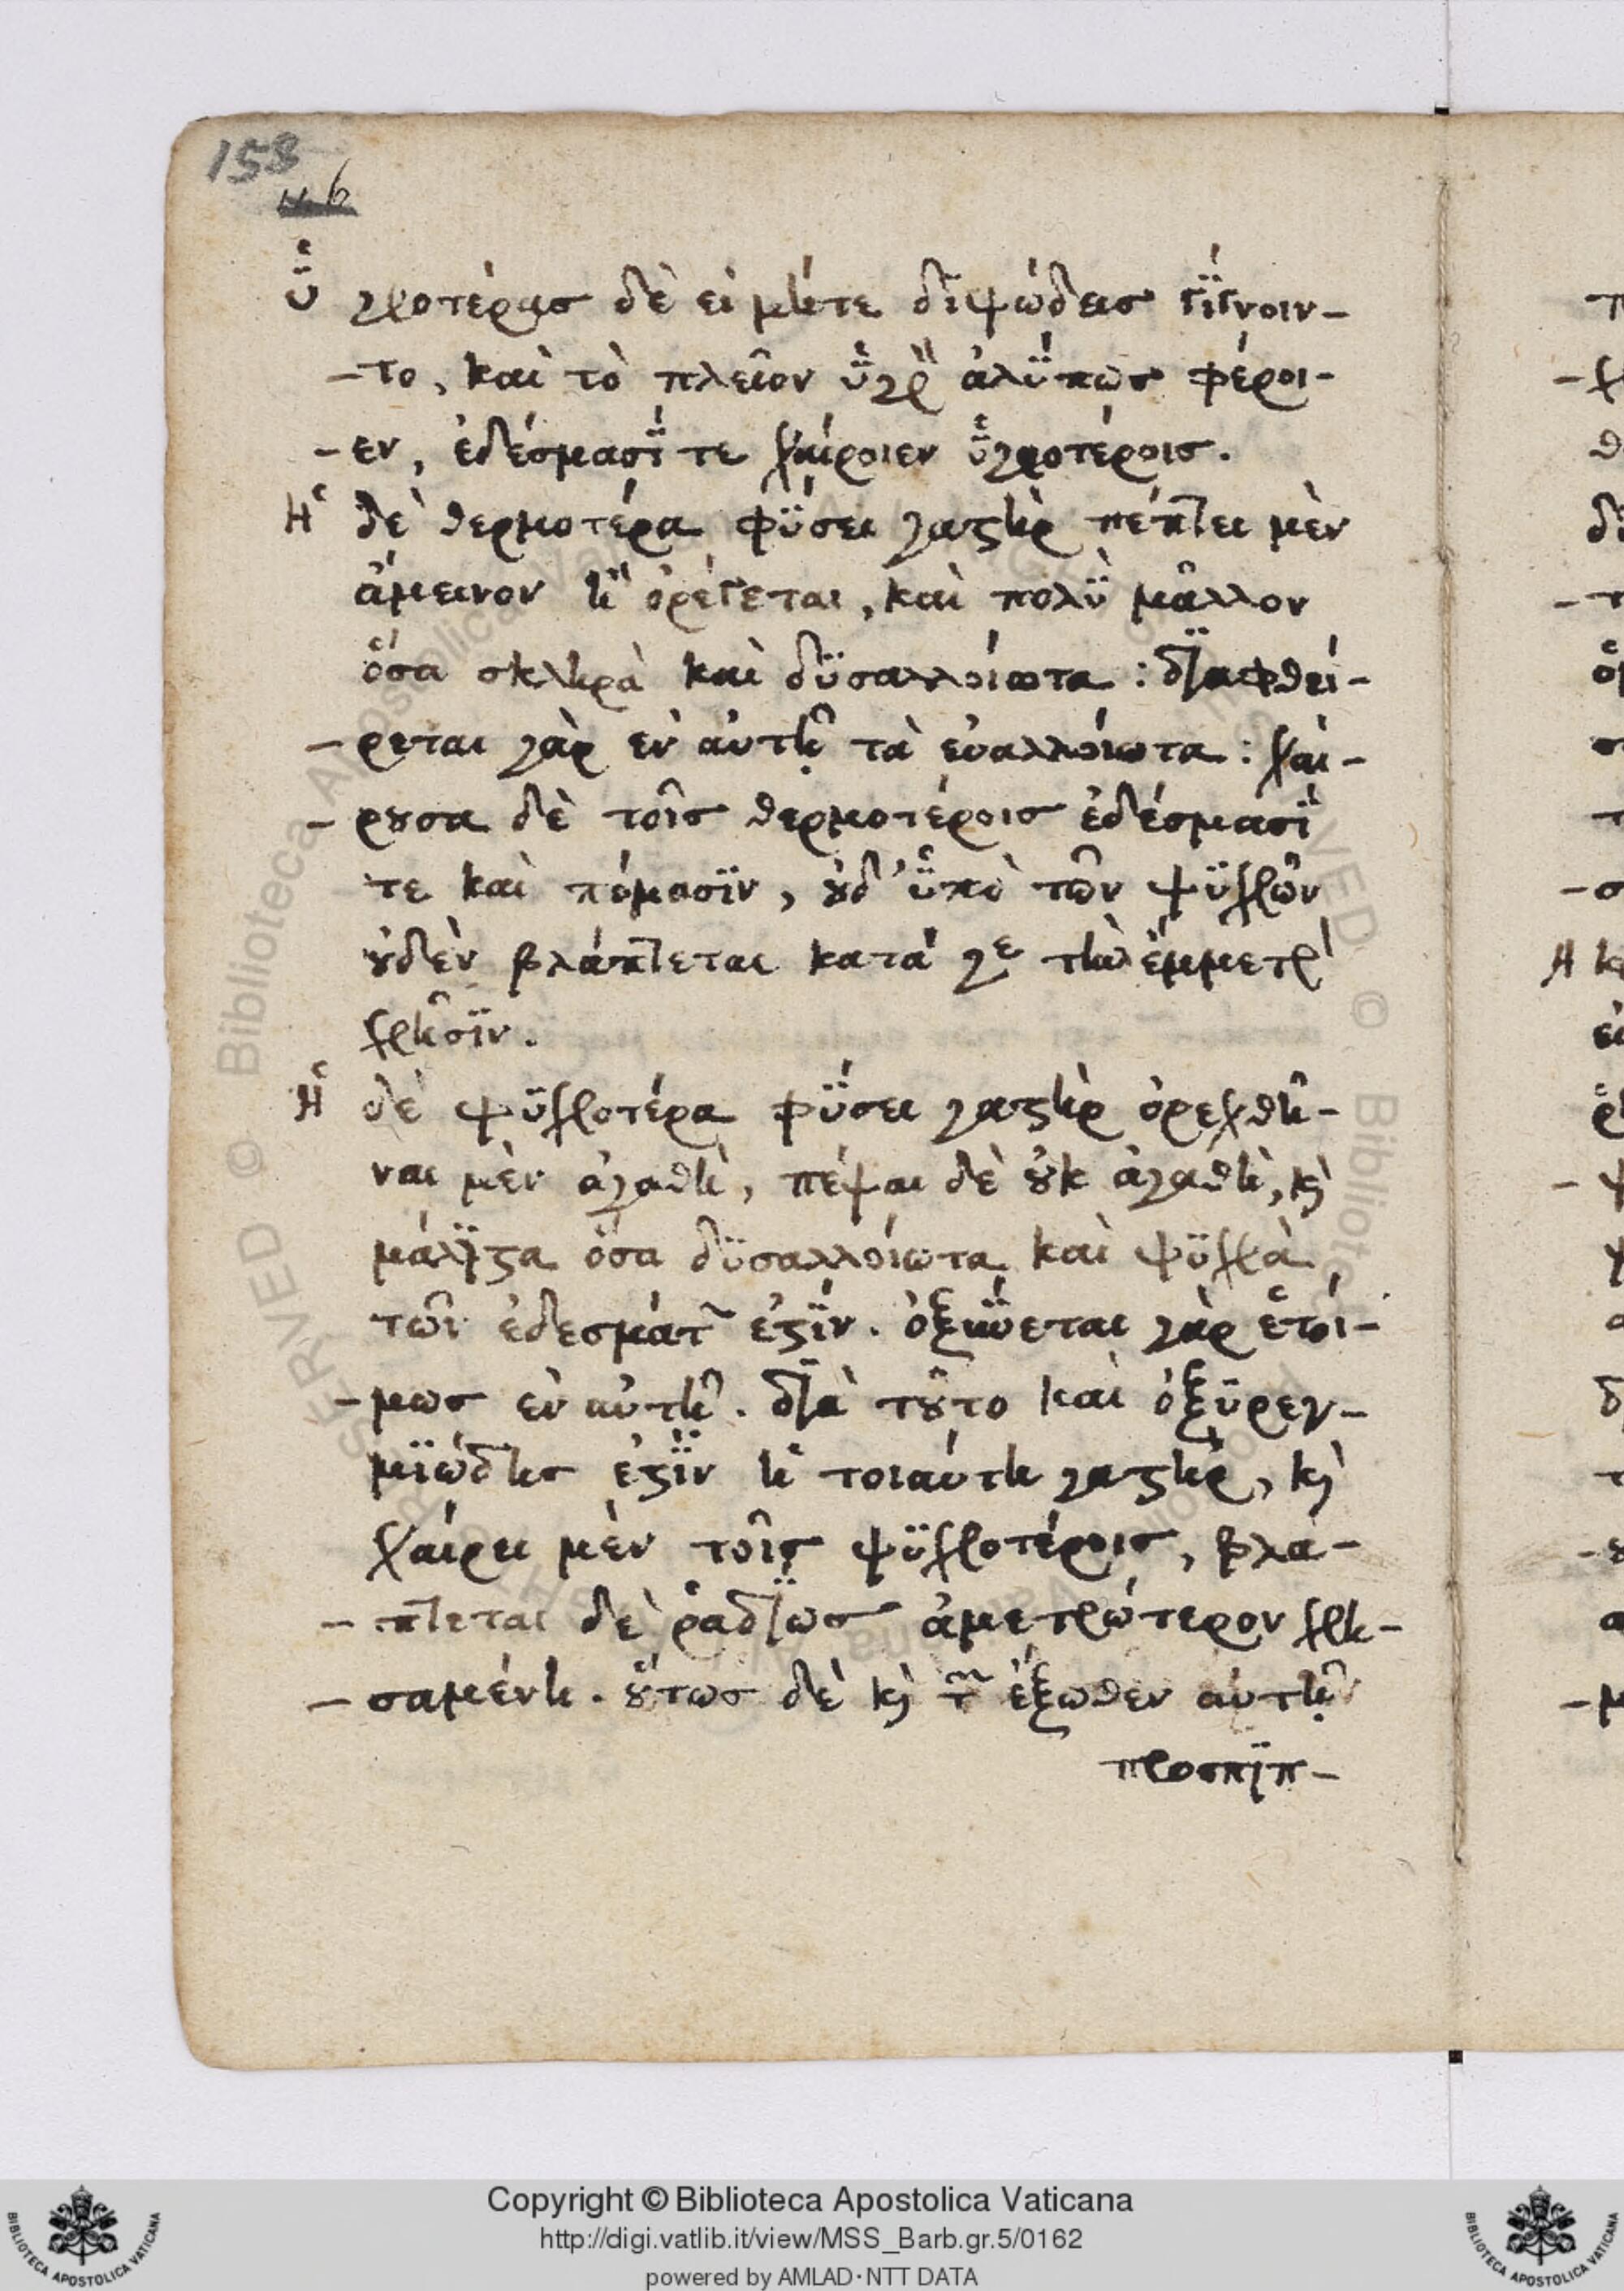 158
ὑγροτέρας δὲ εἰ μήτε διψώδεις γίγνοιν-
-το, καὶ τὸ πλεῖον ὑγρὸν ἀλύπως φέροι-
-εν, ἐδέσμασί τε χαίροιεν ὑγροτέροις.
Ἡ δὲ θερμοτέρα φύσει γαστὴρ πέπτει μὲν
ἄμεινον ἢ ὀρέγεται, καὶ πολὺ μᾶλλον
ὅσα σκληρὰ καὶ δυσαλλοίωτα : διαφθεί-
-ρεται γὰρ ἐν αὐτῇ τὰ εὐαλλοίωτα : χαί-
-ρουσα δὲ τοῖς θερμοτέροις ἐδέσμασί
τε καὶ πόμασιν, οὐδ' ὑπὸ τῶν ψυχρῶν
οὐδὲν βλάπτεται κατά γε τὴν ἔμμετρον
χρῆσιν.
Ἡ δὲ ψυχροτέρα φύσει γαστὴρ ὀρεχθῆ-
ναι μὲν ἀγαθὴ, πέψαι δὲ οὐκ ἀγαθὴ, καὶ
μάλιστα ὅσα δυσαλλοίωτα καὶ ψυχρὰ
τῶν ἐδεσμάτων ἐστίν. ὀξύνεται γὰρ ἑτοί-
-μως ἐν αὐτῇ. διὰ τοῦτο καὶ ὀξυρεγ-
μιώδης ἐστὶν ἡ τοιαύτη γαστὴρ, καὶ
χαίρει μὲν τοῖς ψυχροτέροις, βλά-
-πτεται δὲ ῥαδίως ἀμετρώτερον χρη-
-σαμένη. οὕτως δὲ καὶ τῶν ἔξωθεν αὐτῇ
προσπιπ-
Copyright © Biblioteca Apostolica Vaticana
http://digi.vatlib.it/view/MSS_Barb.gr.5/0162
powered by AMLAD·NTT DATA